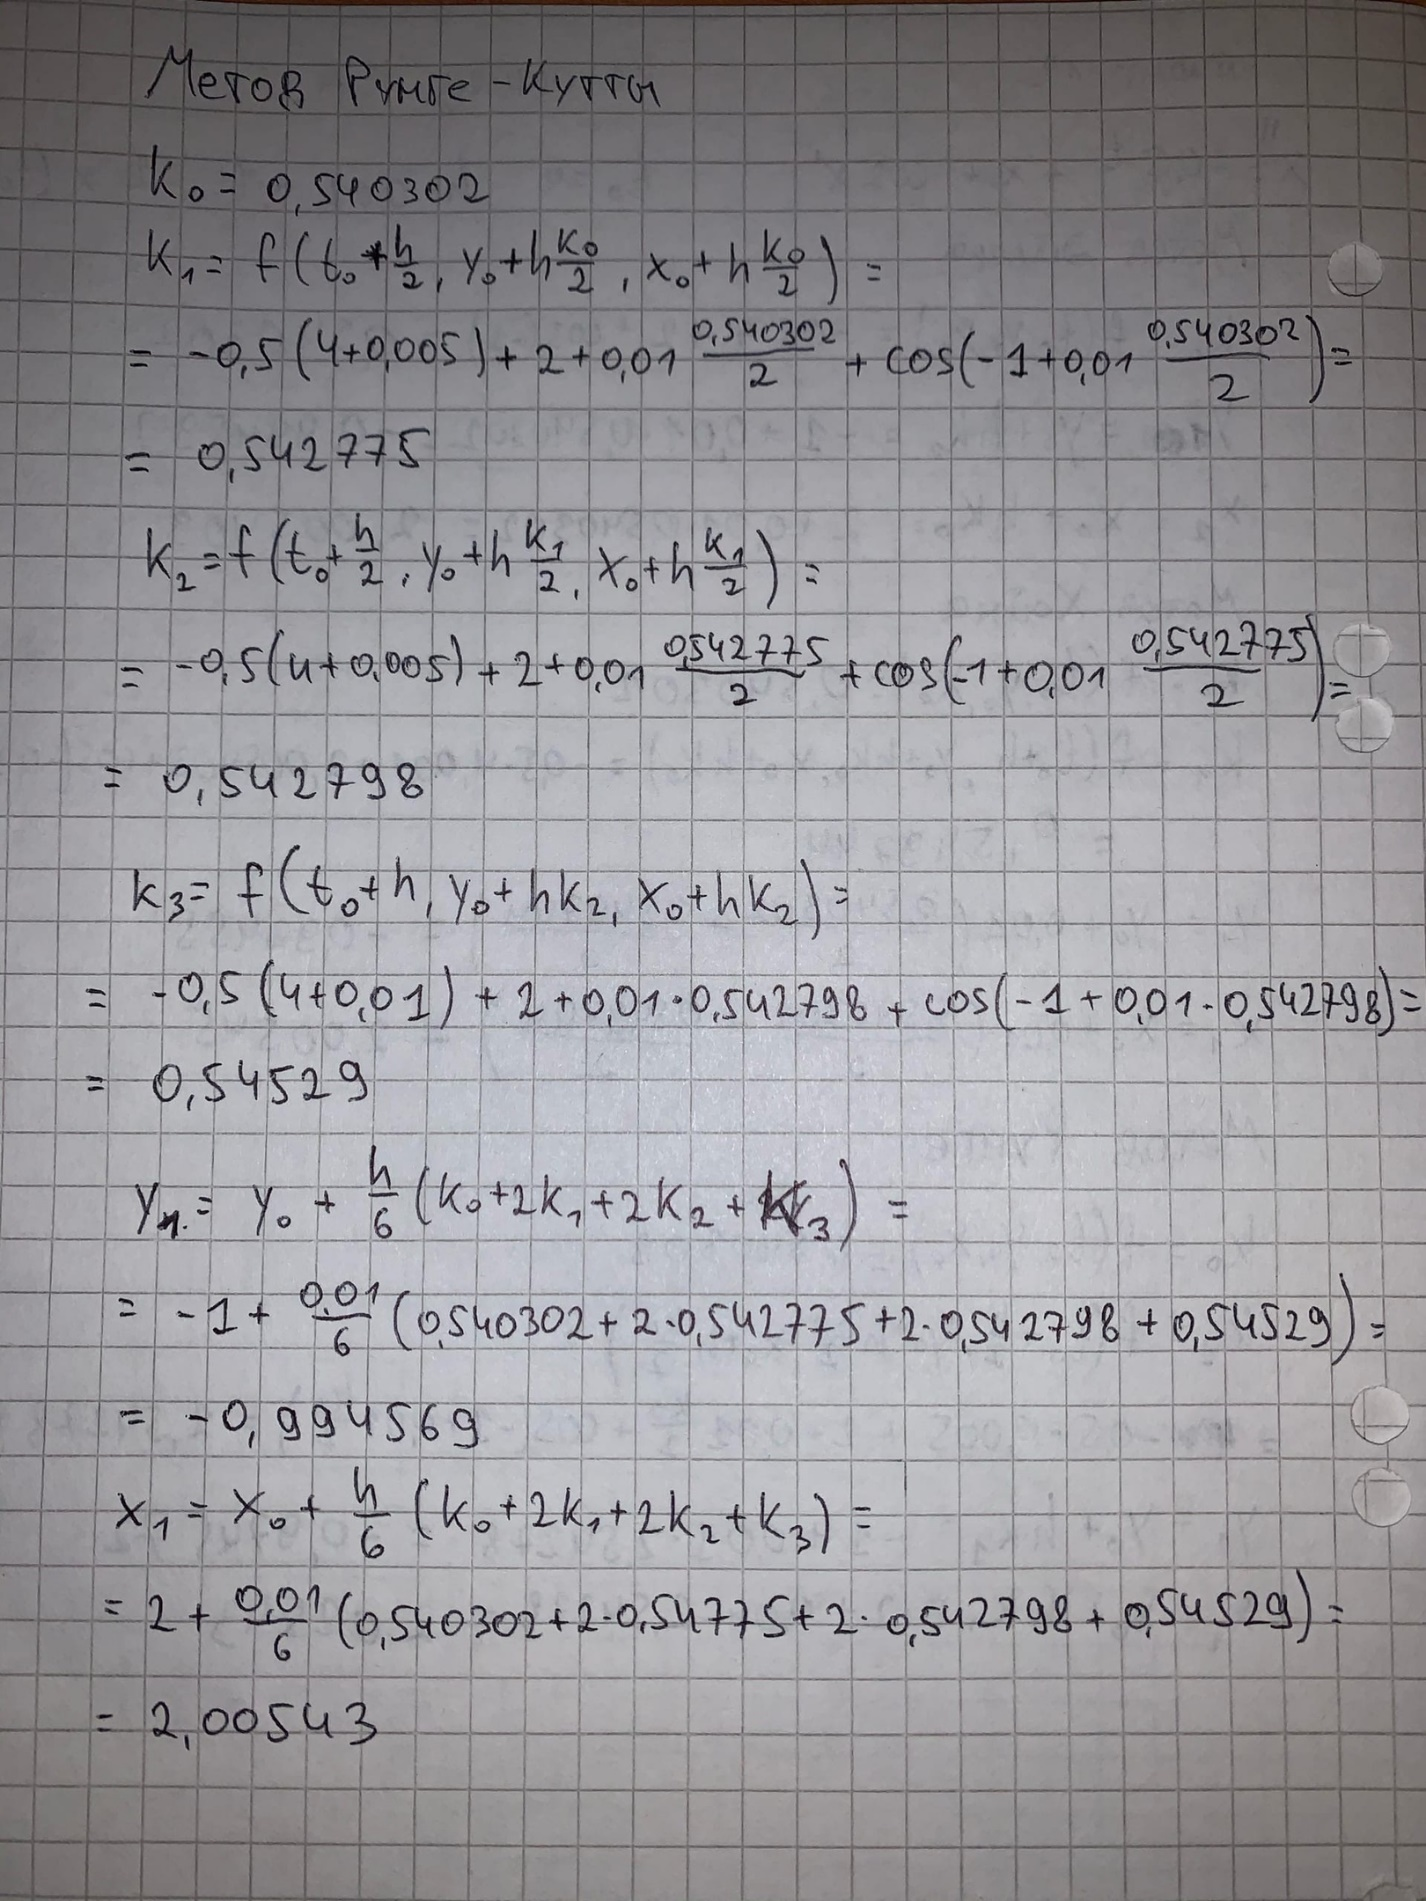 Метод Рунге-Кутты
k₀ = 0,540302
k₁ = f(t₀ + h/2, y₀ + h k₀/2, x₀ + h k₀/2) =
= -0,5(4+0,005) + 2 + 0,01 0,540302/2 + cos(-1 + 0,01 0,540302/2) =
= 0,542775
k₂ = f(t₀ + h/2, y₀ + h k₁/2, x₀ + h k₁/2) =
= -0,5(4+0,005) + 2 + 0,01 0,542775/2 + cos(-1 + 0,01 0,542775/2) =
= 0,542798
k₃ = f(t₀ + h, y₀ + hk₂, x₀ + hk₂) =
= -0,5(4+0,01) + 2 + 0,01·0,542798 + cos(-1 + 0,01·0,542798) =
= 0,54529
y₁ = y₀ + h/6 (k₀ + 2k₁ + 2k₂ + k₃) =
= -1 + 0,01/6 (0,540302 + 2·0,542775 + 2·0,542798 + 0,54529) =
= -0,994569
x₁ = x₀ + h/6 (k₀ + 2k₁ + 2k₂ + k₃) =
= 2 + 0,01/6 (0,540302 + 2·0,54775 + 2·0,542798 + 0,54529) =
= 2,00543